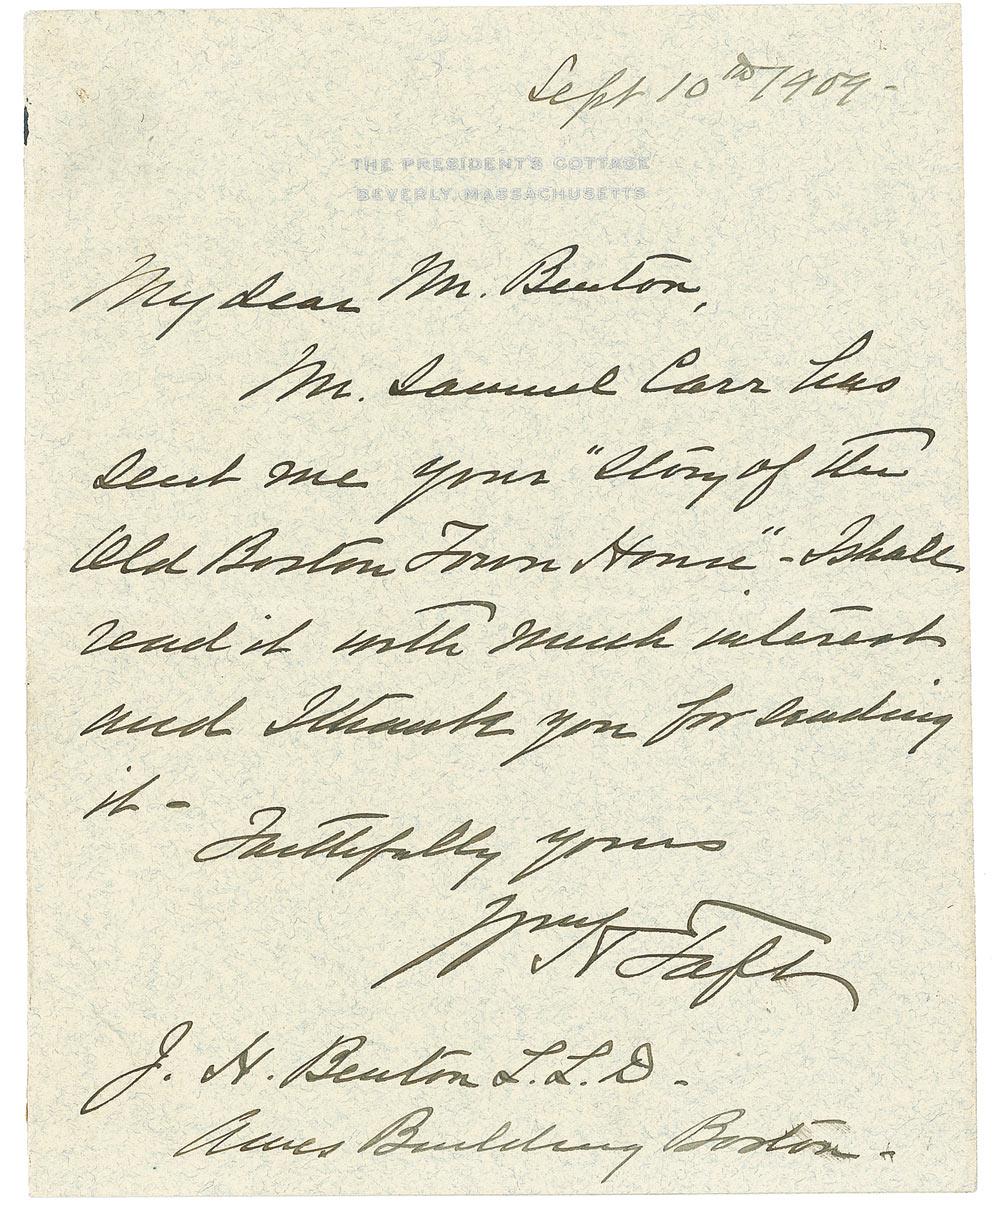 Sept 10th 1909-
THE PRESIDENT'S COTTAGE
BEVERLY, MASSACHUSETTS
My dear Mr. Benton,
Mr. Samuel Carr has
sent me your "Story of the
Old Boston Town House" - I shall
read it with much interest
and I thank you for sending
it -
Faithfully yours
Wm H Taft
J. H. Benton L.L.D -
Ames Building Boston -